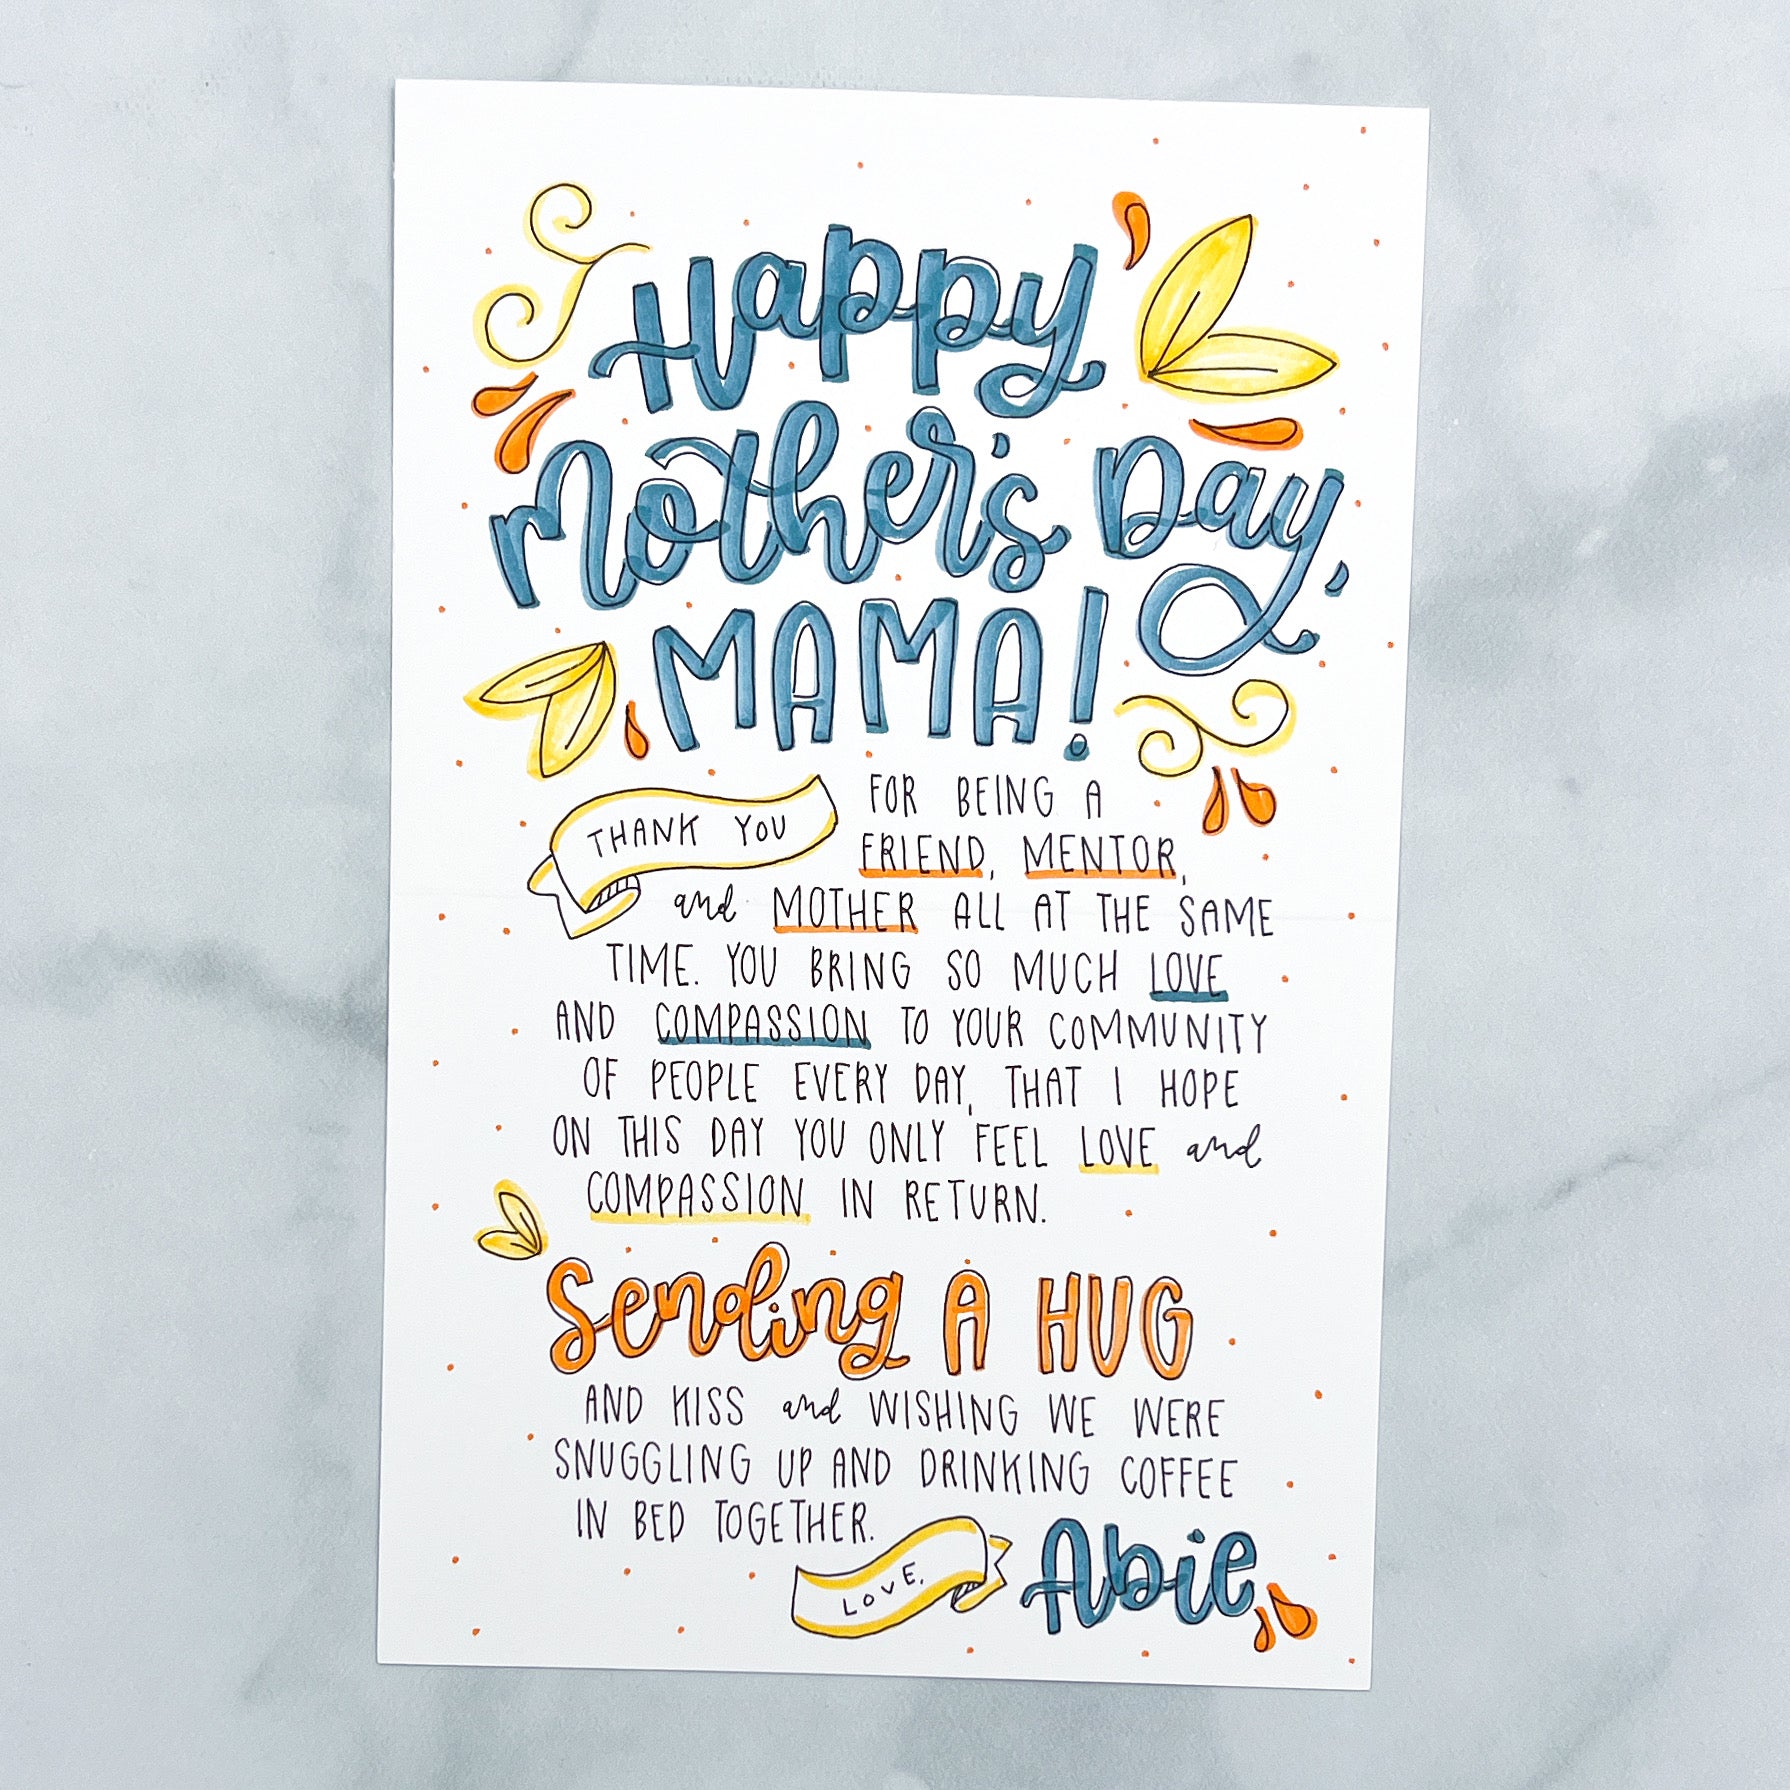 Happy
Mother's Day,
MAMA!
THANK YOU FOR BEING A
FRIEND, MENTOR,
and MOTHER ALL AT THE SAME
TIME. YOU BRING SO MUCH LOVE
AND COMPASSION TO YOUR COMMUNITY
OF PEOPLE EVERY DAY, THAT I HOPE
ON THIS DAY YOU ONLY FEEL LOVE and
COMPASSION IN RETURN.
Sending A HUG
AND KISS and WISHING WE WERE
SNUGGLING UP AND DRINKING COFFEE
IN BED TOGETHER.
LOVE, Abie